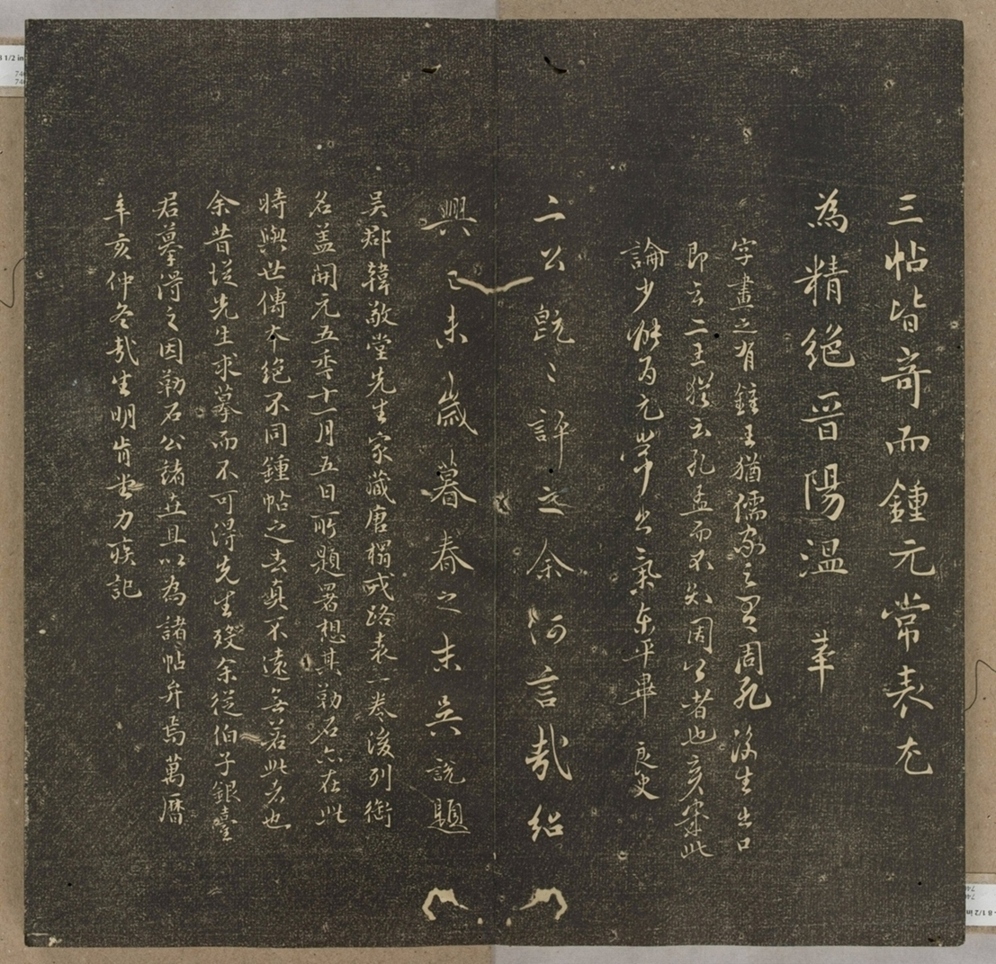 三帖皆奇而鍾元常表尤
為精絕晉陽溫革
字畫之有鍾王猶儒家之周孔後生出口
即云二王猶云孔孟而不知周公者也此
論少為元常出氣東平畢良史
二公既評之余何言哉紹
興己未歲暮春之末吳說題
吳郡韓敬堂先生家藏唐榻戎路表一卷後列銜
名蓋開元五季十一月五日所題署想其勒石亦在此
時與世傳本絕不同鍾帖之去真不遠無若此者也
余昔從先生求摹而不可得先生歿余從伯子銀臺
君摹得之因勒石公諸世且以為諸帖弁焉萬曆
辛亥仲冬哉生明肯堂力疾記